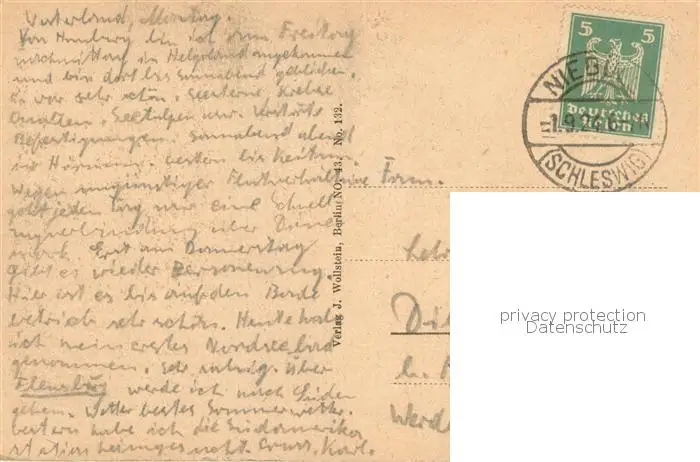 Westerland, Montag.
Von Hamburg bin ich am Freitag
nachmittag in Helgoland angekommen
und bin dort bis Sonnabend geblieben.
Es war sehr schön. Seesterne, Krebse
Quallen, Seetulpen usw. 
Befestigungen. Sonnabend abend
in Hörnum. Gestern bis Keitum.
Wegen ungünstiger Flutverhältnisse
geht jeden Tag nur eine Schnell
zugverbindung über Däne
mark. Erst am Donnerstag
gibt es wieder Personenzug.
Hier ist es bis auf den Bade
betrieb sehr schön. Heute habe
ich mein erstes Nordseebad
genommen. Sehr ruhig. Über
Flensburg werde ich nach Süden
gehen. Wetter bestes Sommerwetter.
Gestern habe ich die Südamerika
station heimgesucht. Gruss, Karl.
Verlag J. Wollstein, Berlin NO. 43. No. 132.
5 5
Deutsches Reich
NIEBÜLL
1.9.24.6
(SCHLESWIG)
Fam.
Leh
Di
b.
Werd
privacy protection
Datenschutz